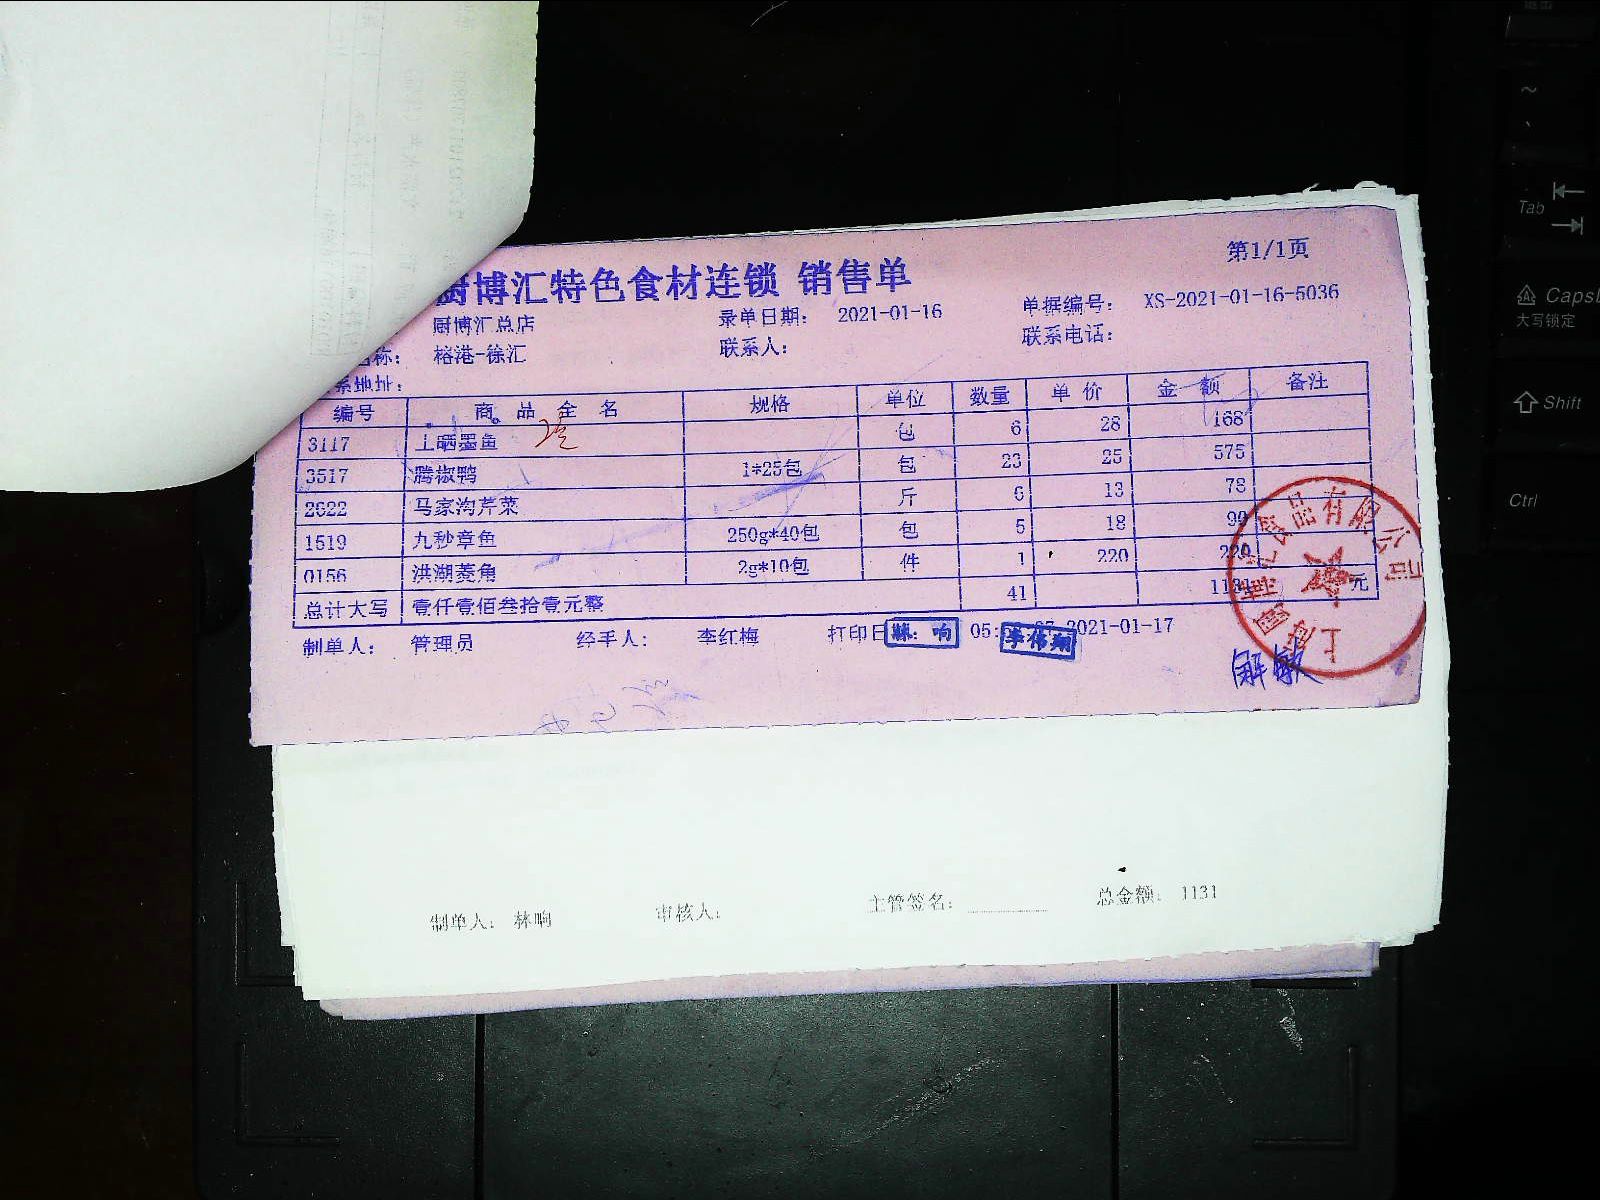 第1/1页
厨博汇特色食材连锁 销售单
厨博汇总店 录单日期: 2021-01-16 单据编号: XS-2021-01-16-5036
名称: 榕港-徐汇 联系人: 联系电话:
系地址:
编号 商品全名 规格 单位 数量 单价 金额 备注
3117 上晒墨鱼 包 6 28 168
3517 腾椒鸭 1*25包 包 23 25 575
2622 马家沟芹菜 斤 6 13 78
1519 九秒章鱼 250g*40包 包 5 18 90
0156 洪湖菱角 2g*10包 件 1 220 220
总计大写 壹仟壹佰叁拾壹元整 41 1131 元
制单人: 管理员 经手人: 李红梅 打印日 05: 2021-01-17
林响
李伟翔
解敏
制单人: 林响 审核人: 主管签名: 总金额: 1131
Tab
Caps
大写锁定
Shift
Ctrl